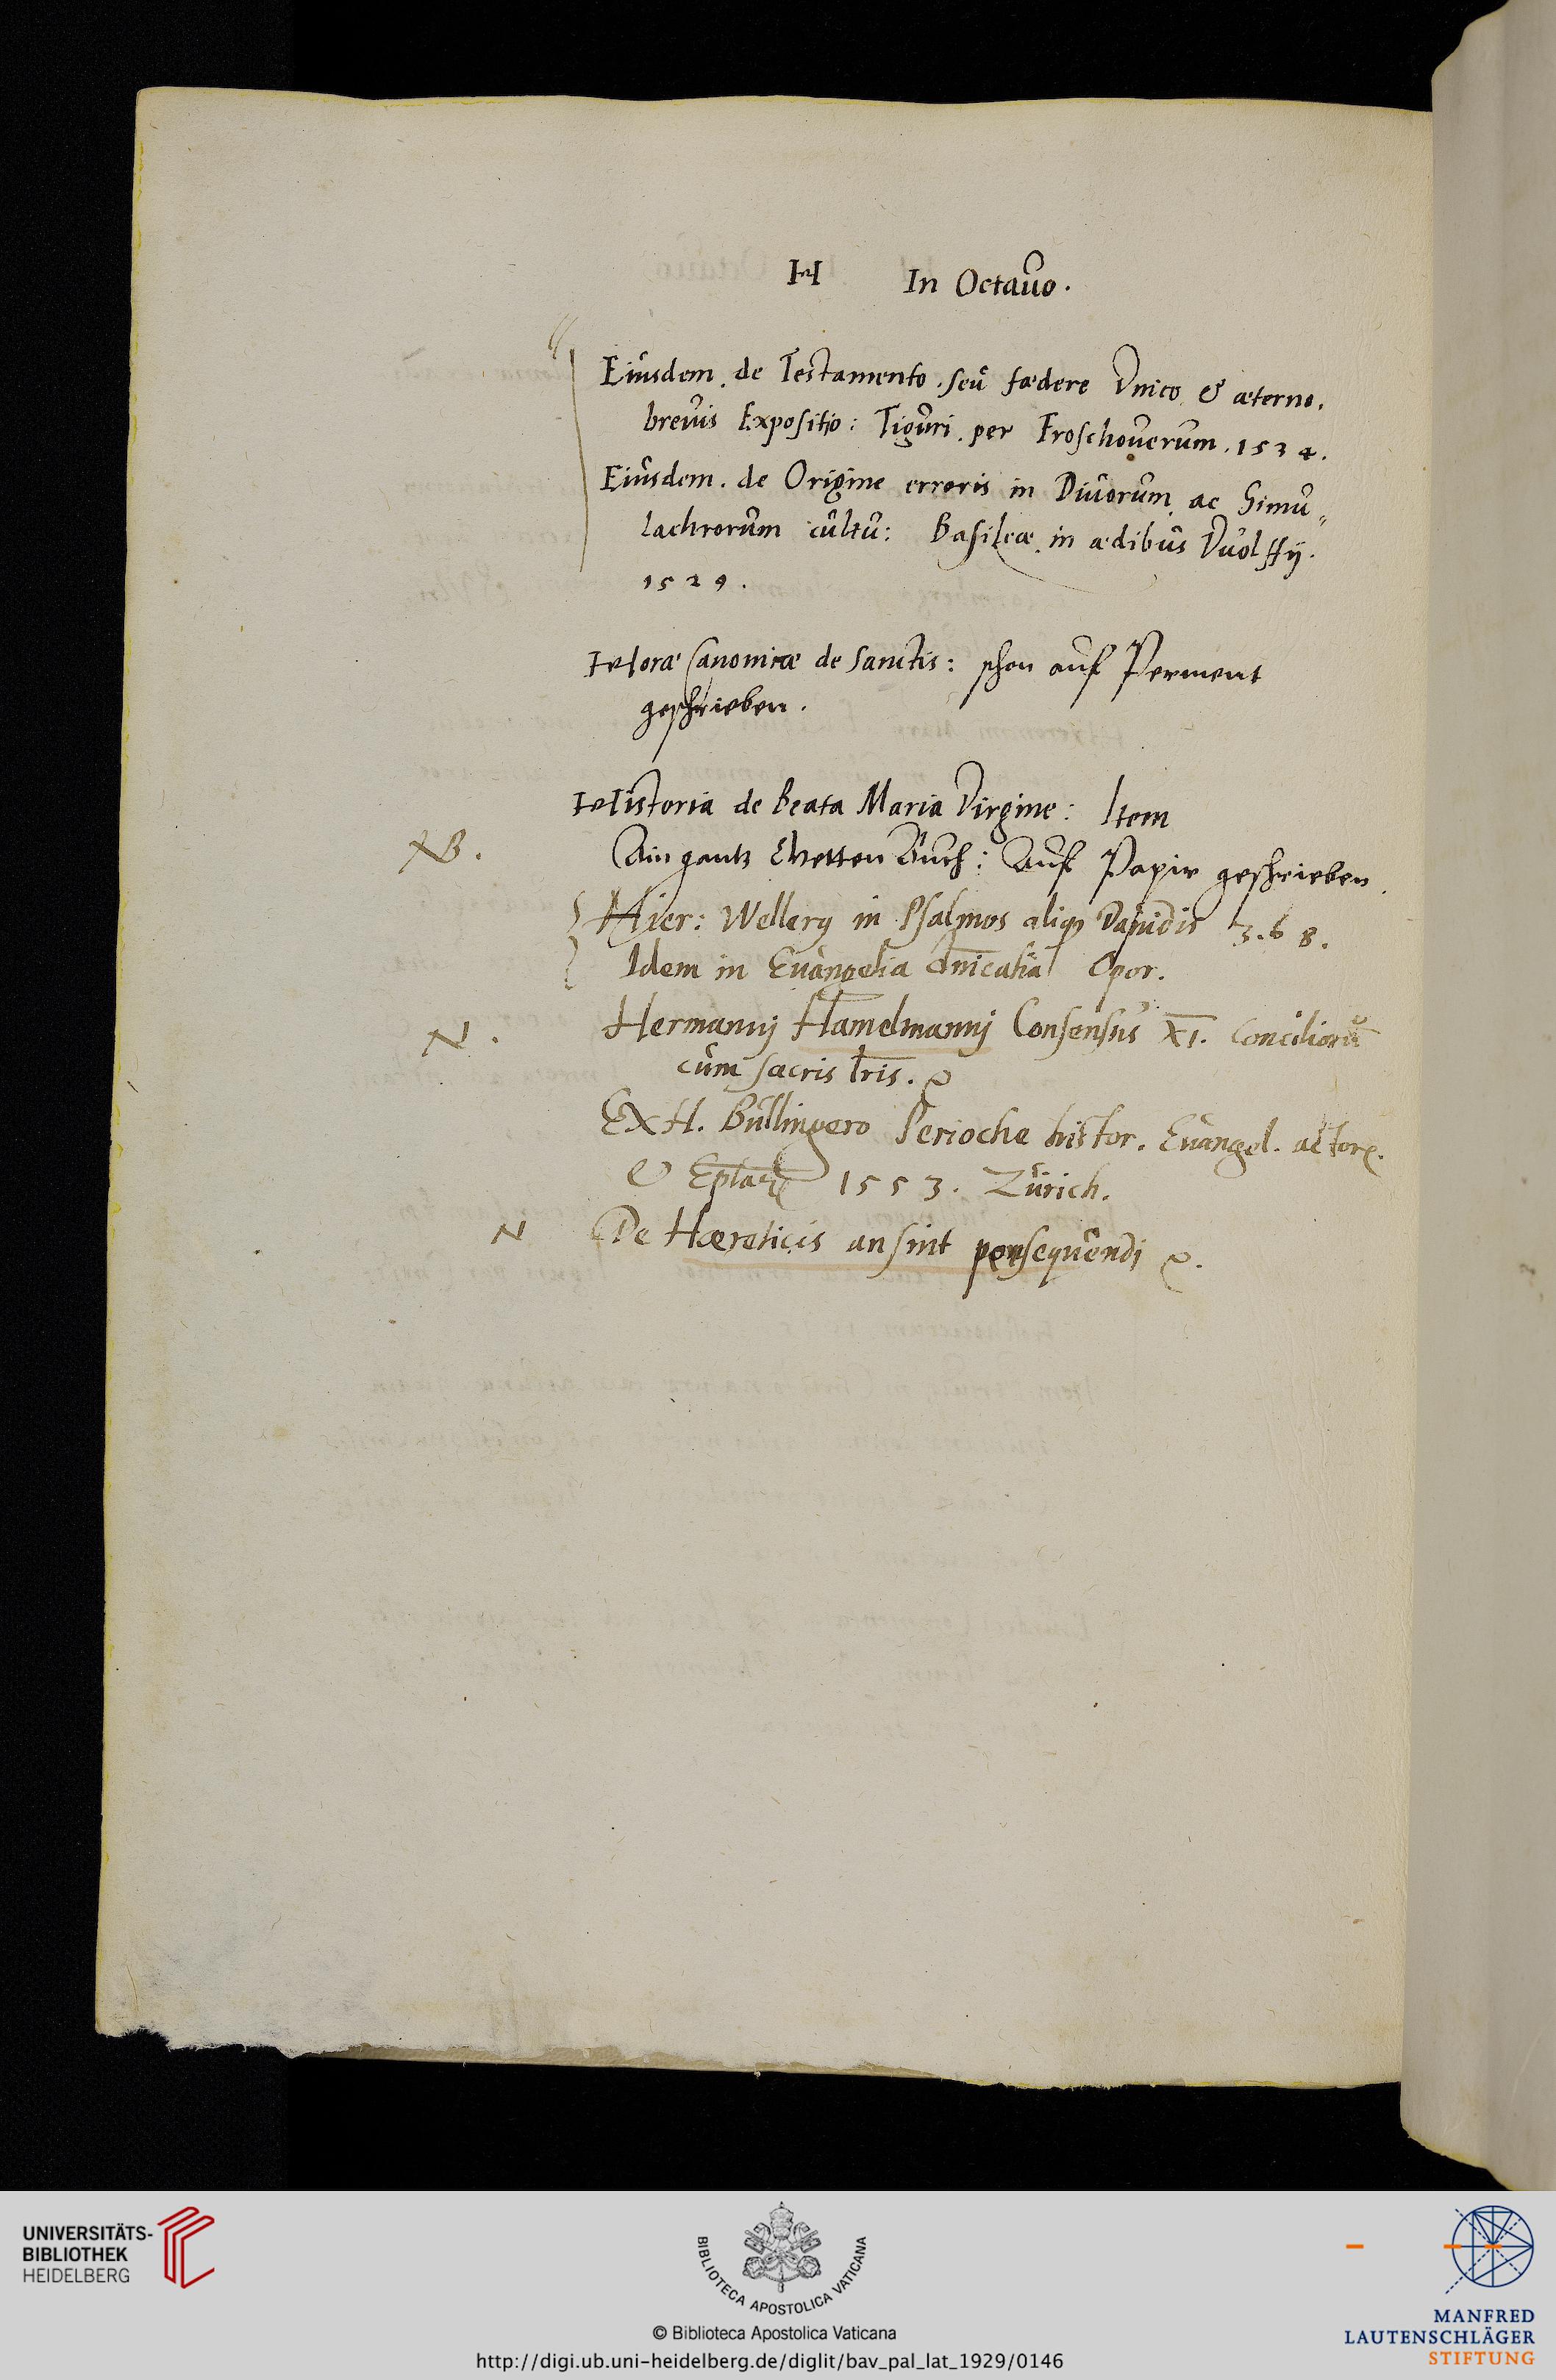 H In Octauo.
Eiusdem. de Testamento. seu fœdere Vnico & æterno.
breuis Expositio: Tiguri. per Froschouerum. 1534.
Eiusdem. de Origine erroris in Diuorum ac Simu„
lachrorum cultu: Basileæ in ædibus Vuolffij.
1529.
Horæ Canonicæ de Sanctis: schon auf Perment
geschrieben.
Historia de Beata Maria Virgine: Item
NB. Ain gantz Betten Buch: Auf Papir geschrieben.
Hier: Wellerus in Psalmos aliq Dauidis 3. 6 8.
Idem in Euangelia dnicalia Opor.
N. Hermannj Hamelmannj Consensus XI. Conciliorū
cum sacris lris.
Ex H. Bullingero Perioche histor. Euangel. actor.
& Eplarum 1553. Zürich.
N De Hæreticis an sint persequendi
UNIVERSITÄTS-
BIBLIOTHEK
HEIDELBERG
BIBLIOTECA APOSTOLICA VATICANA
© Biblioteca Apostolica Vaticana
http://digi.ub.uni-heidelberg.de/diglit/bav_pal_lat_1929/0146
MANFRED
LAUTENSCHLÄGER
STIFTUNG